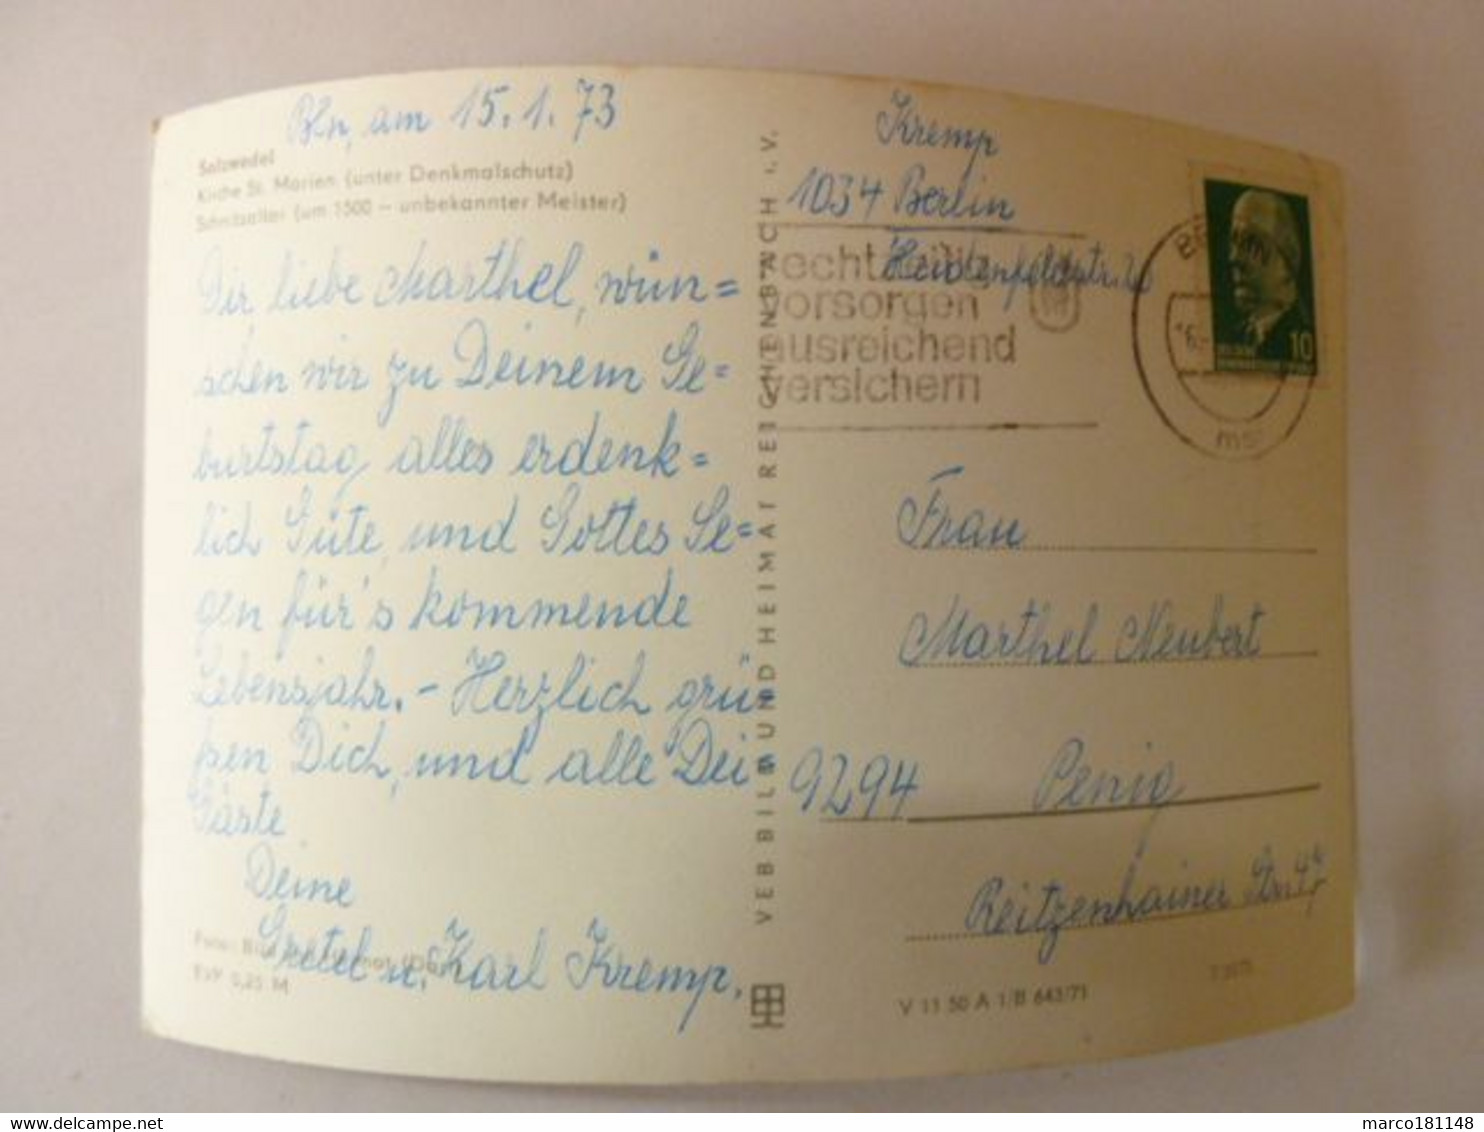 Bln, am 15.1.73
Salzwedel
Kirche St. Marien (unter Denkmalschutz)
Schnitzaltar (um 1500 – unbekannter Meister)
Dir liebe Marthel, wün=
schen wir zu Deinem Ge=
burtstag alles erdenk=
lich Gute, und Gottes Se=
gen für's kommende
Lebensjahr. – Herzlich grü=
ßen Dich, und alle Dei=
Gäste
Deine
Gretel u. Karl Kremp.
EVP 0,25 M
VEB BILD UND HEIMAT REICHENBACH i. V.
Kremp
1034 Berlin
rechtzeitig
vorsorgen
ausreichend
versichern
BERLIN
10
Frau
Marthel Neubert
9294 Penig
Reitzenhainer Str. 47
V 11 50 A 1/B 643/71
marco181148